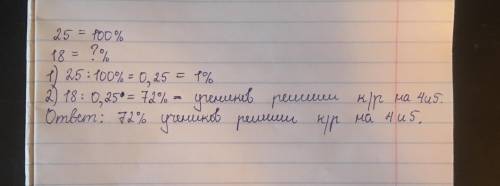 25 = 100%
18 = ?%
1) 25 : 100% = 0,25 = 1%
2) 18 : 0,25 = 72% - учеников решили к/р на 4 и 5.
Ответ: 72% учеников решили к/р на 4 и 5.